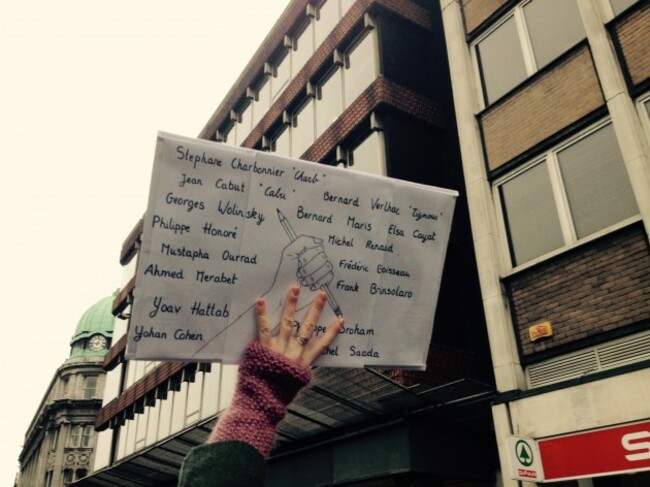 Stephane Charbonnier "Charb"
Jean Cabut "Cabu" Bernard Verlhac "Tignous"
Georges Wolinsky Bernard Maris Elsa Cayat
Philippe Honoré Michel Renaud
Mustapha Ourrad Frédéric Boisseau
Ahmed Merabet Frank Brinsolaro
Yoav Hattab
Yohan Cohen Braham
Saada
S